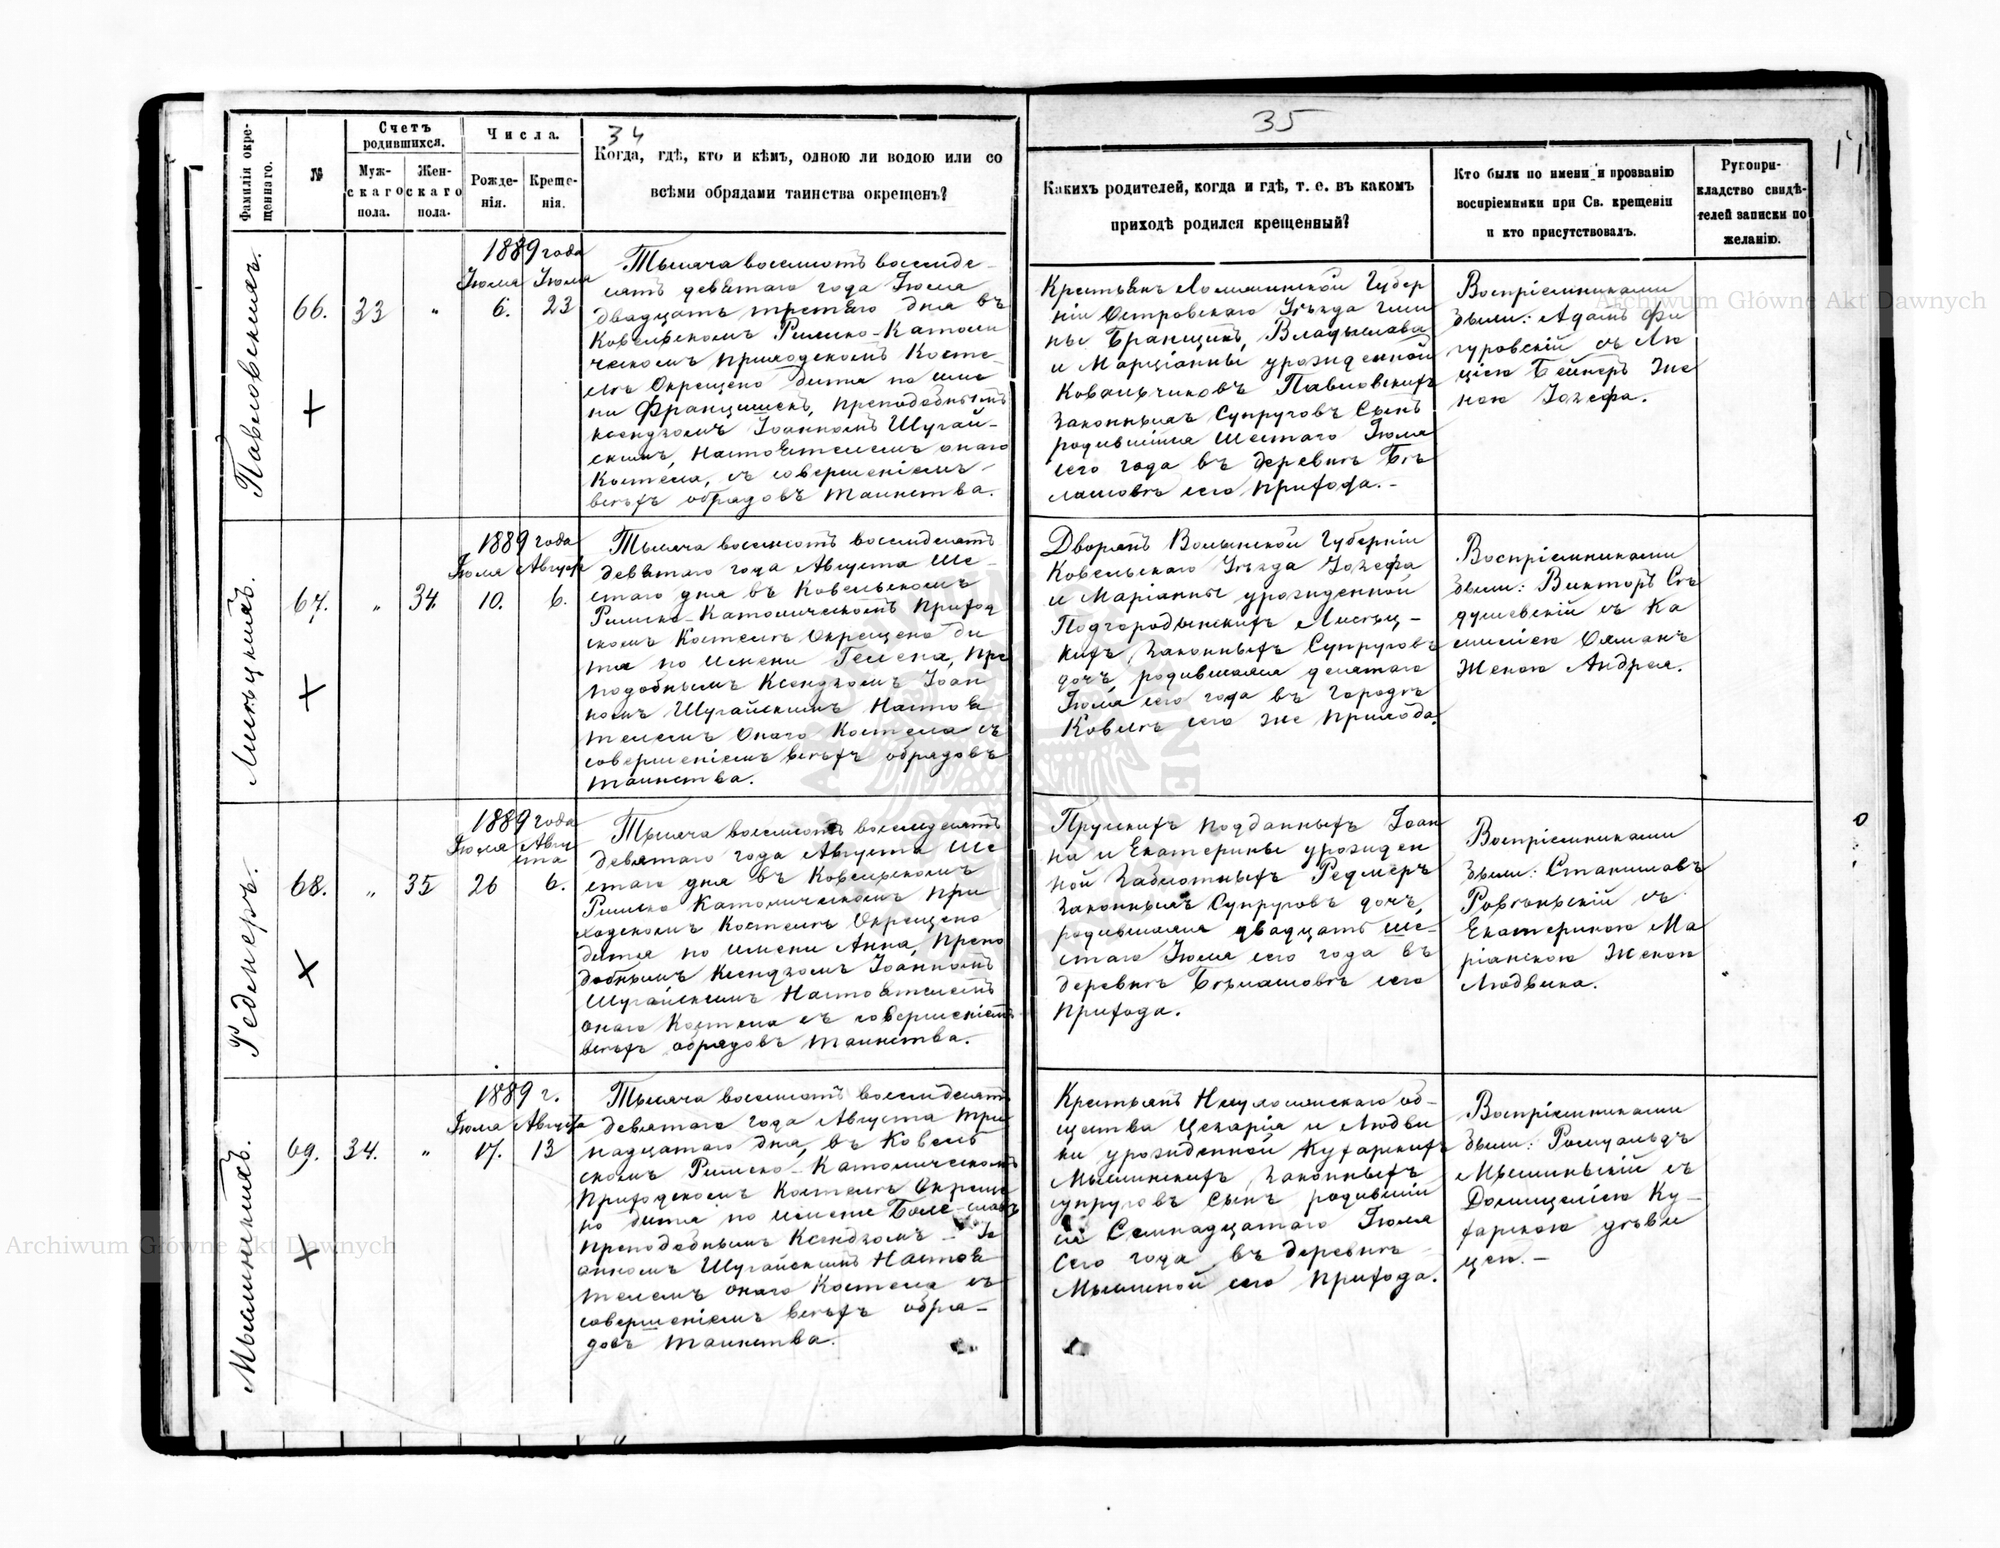 34
35
Фамилія окре-
щеннаго.
№
Счетъ
родившихся.
Муж-
скаго
пола.
Жен-
скаго
пола.
Числа.
Рожде-
нія.
Креще-
нія.
Когда, гдѣ, кто и кѣмъ, одною ли водою или со
всѣми обрядами таинства окрещенъ?
Какихъ родителей, когда и гдѣ, т. е. въ какомъ
приходѣ родился крещенный?
Кто были по имени и прозванію
воспріемники при Св. крещеніи
и кто присутствовалъ.
Рукопри-
кладство свидѣ-
телей записки по
желанію.
66.
33
"
1889 года
Іюля Іюля
6. 23
Тысяча восемьсотъ восемьде-
сятъ девятаго года Іюля
двадцать третьяго дня въ
Ковельскомъ Римско-Католи
ческомъ приходскомъ Косте-
лѣ Окрещено дитя по име
ни Францишекъ, преподобнымъ
ксендзомъ Іоанномъ Шугай-
скимъ, Настоятелемъ онаго
Костела, съ совершеніемъ
всѣхъ обрядовъ таинства.
Крестьянъ Ломжинской Губер
ніи Островскаго Уѣзда гми
ны Бранщикъ, Владыслава
и Марціанны урожденной
Ковальчиковъ Павловскихъ
законныхъ Супруговъ Сынъ
родившійся шестаго Іюля
сего года въ деревнѣ Бѣ
лашовѣ сего прихода.-
Воспріемниками
были: Адамъ Фи
гуровскій съ Лю
ціею Бейнеръ Же
ною Іозефа.
67.
"
34
1889 года
Іюля Августа
10. 6.
Тысяча восемьсотъ восемьдесятъ
девятаго года Августа Ше-
стаго дня въ Ковельскомъ
Римско-Католическомъ приход
скомъ Костелѣ Окрещено ди
тя по имени Гелена, пре
подобнымъ Ксендзомъ Іоан
номъ Шугайскимъ Настоя
телемъ Онаго Костела съ
совершеніемъ всѣхъ обрядовъ
таинства.
Дворянъ Волынской Губерніи
Ковельскаго Уѣзда Іозефа
и Маріанны урожденной
Подгородынскихъ
законныхъ Супруговъ
дочь, родившаяся десятаго
Іюля сего года въ городѣ
Ковелѣ сего же прихода.
Воспріемниками
были: Викторъ Сѣ
душевскій съ Ка
Женою Андрея.
Редмеръ.
68.
"
35
1889 года
Іюля Авгу
ста
26 6.
Тысяча восемьсотъ восемьдесятъ
девятаго года Августа Ше
стаго дня въ Ковельскомъ
Римско Католическомъ при
ходскомъ Костелѣ Окрещено
дитя по имени Анна, препо
добнымъ Ксендзомъ Іоанномъ
Шугайскимъ Настоятелемъ
онаго Костела съ совершеніемъ
всѣхъ обрядовъ таинства.
Прускихъ подданныхъ Іоан
на и Екатерины урожден
ной Заблотныхъ Редмеръ
Законныхъ Супруговъ дочь,
родившаяся двадцать ше-
стаго Іюля сего года въ
деревнѣ Бѣлашовѣ сего
прихода.
Воспріемниками
были: Станиславъ
съ
Екатериною Ма
ріанскою Женою
Людвика.
69.
34.
"
1889 г.
Іюля Августа
17. 13
Тысяча восемьсотъ восемьдесятъ
девятаго года Августа три
надцатаго дня, въ Ковель
скомъ Римско-Католическомъ
Приходскомъ Костелѣ Окреще
но дитя по имени Болеславъ
преподобнымъ Ксендзомъ Іо
анномъ Шугайскимъ Настоя
телемъ онаго Костела съ
совершеніемъ всѣхъ обря-
довъ таинства.
Крестьянъ об-
щества Цекарія и Людви
ки урожденной Куфарскихъ
Мыслинскихъ, законныхъ
супруговъ Сынъ родивші
ся Семнадцатаго Іюля
Сего года въ деревнѣ
Мыслиной сего прихода.
Воспріемниками
были: Ромуальдъ
Мыслинскій съ
Домицеліею Ку-
фарскою дѣви
цею.-
Archiwum Główne Akt Dawnych
Archiwum Główne Akt Dawnych